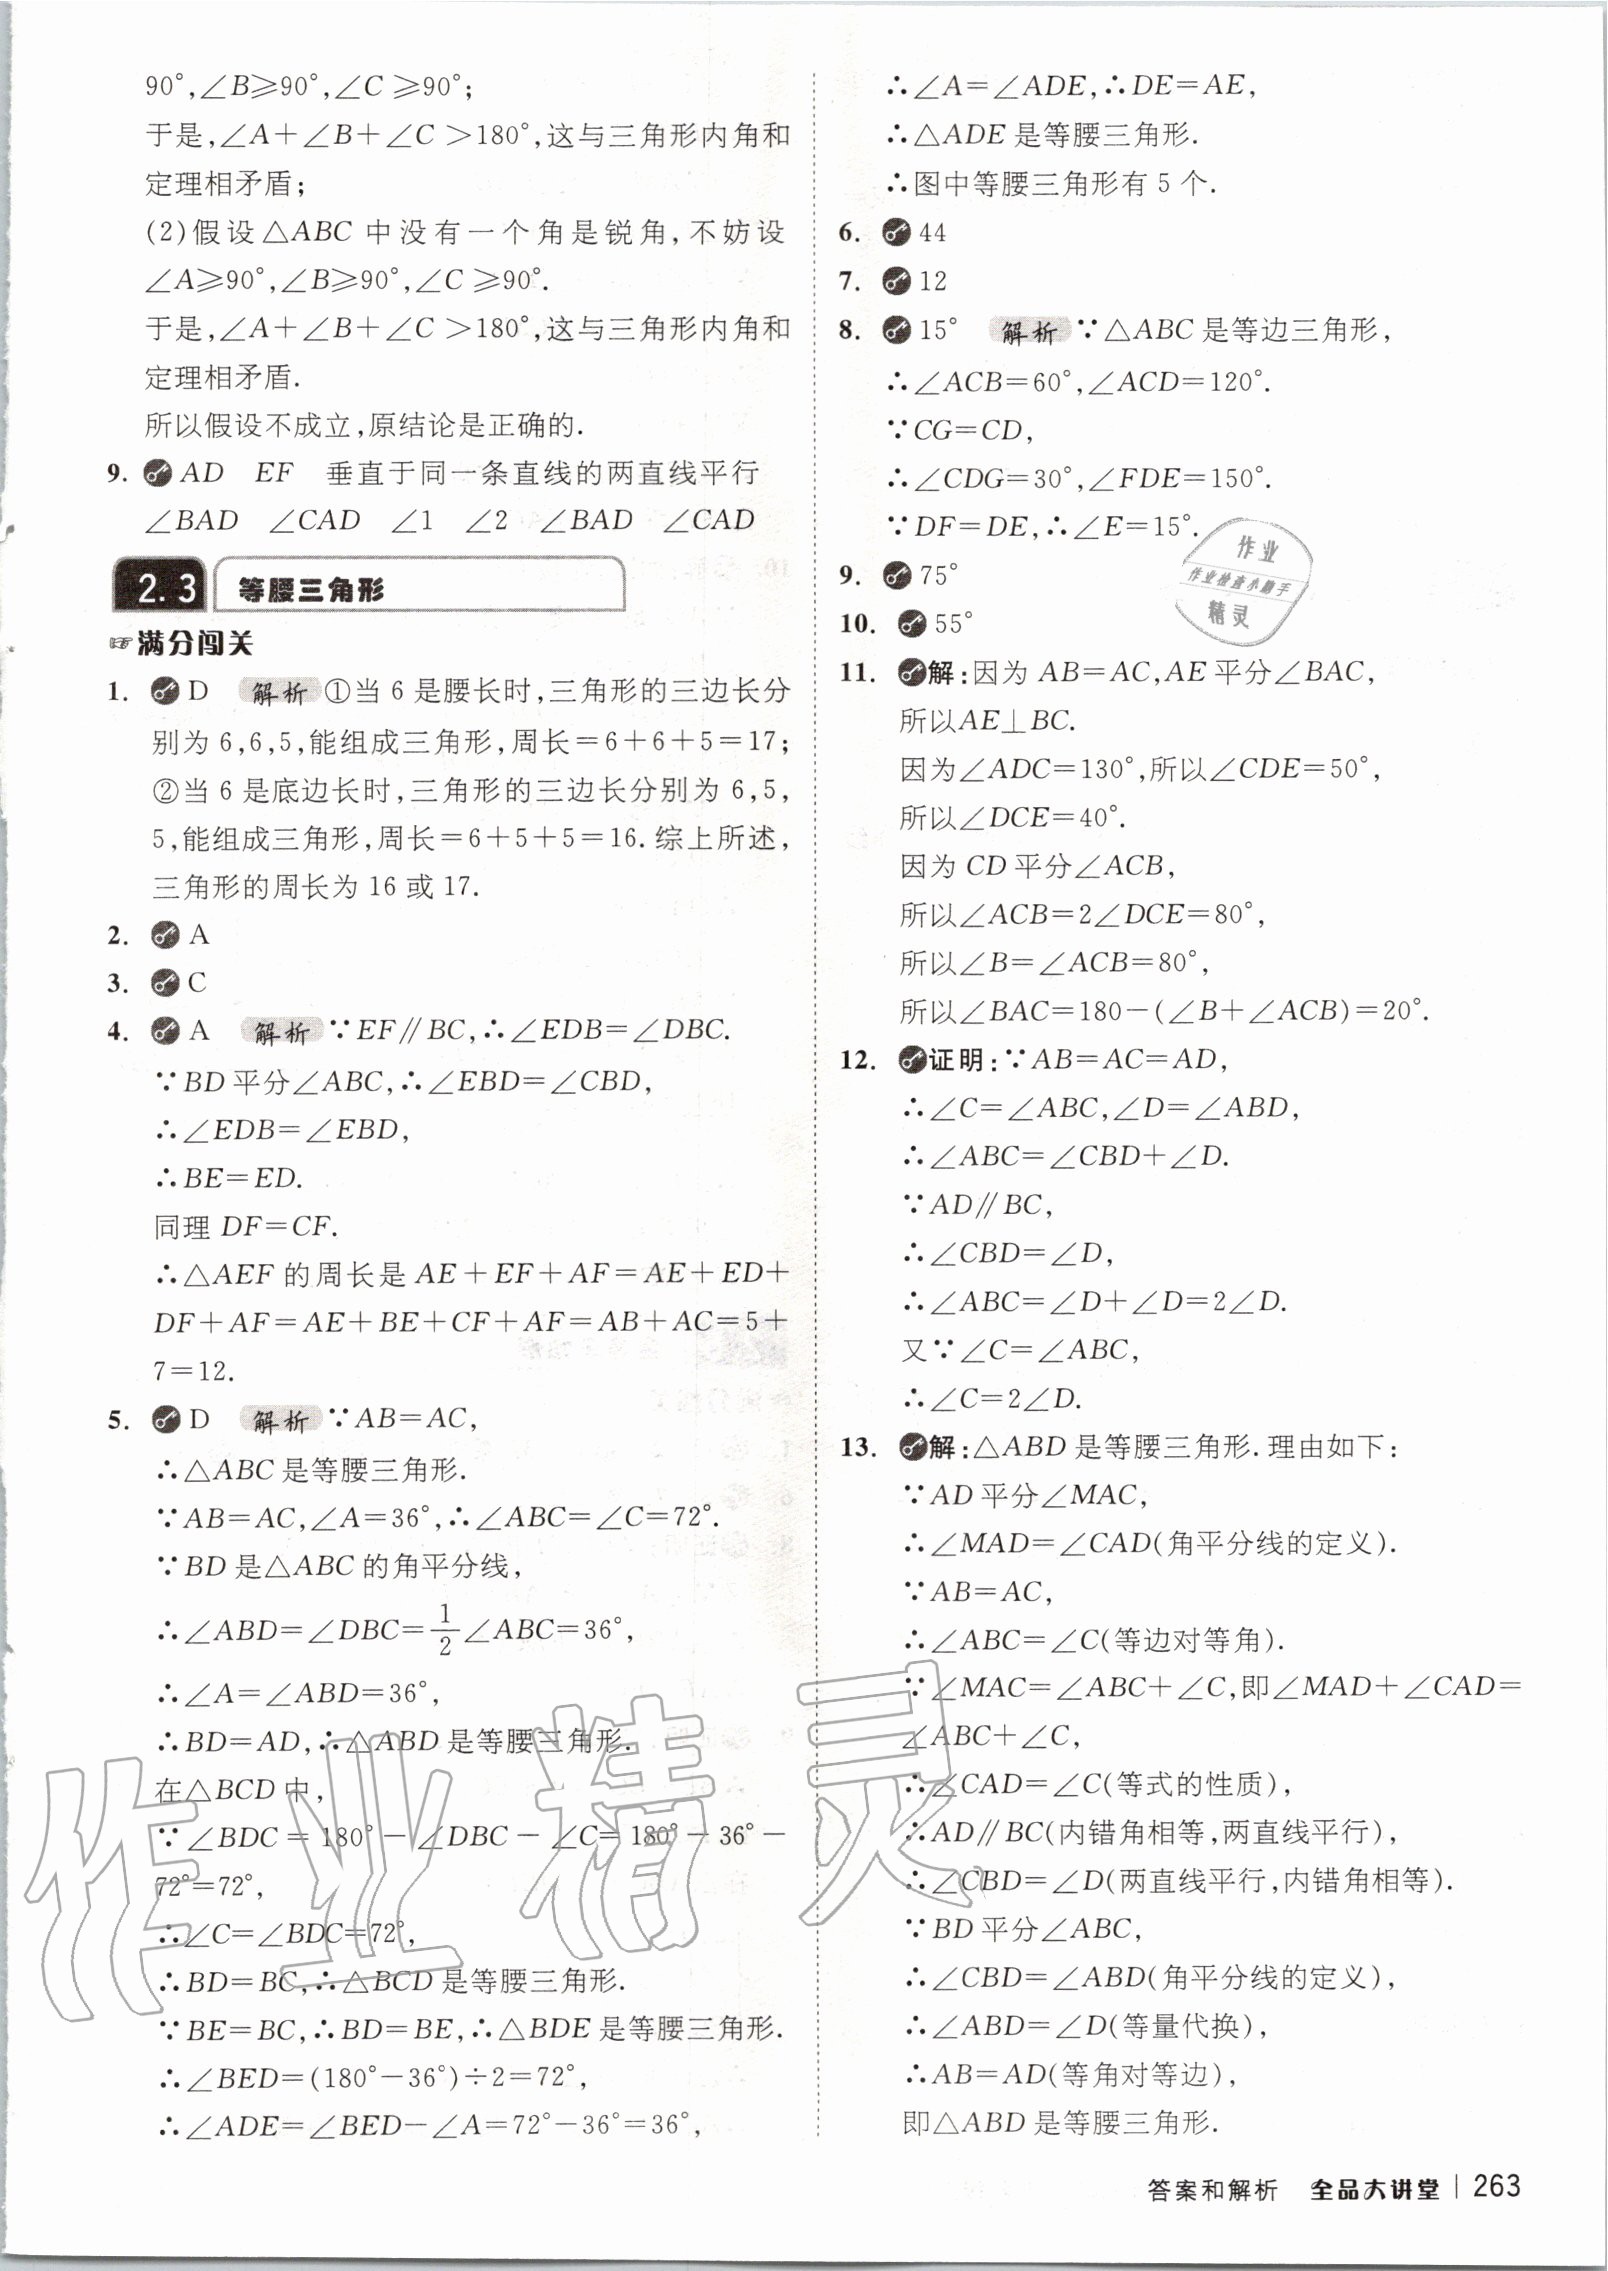 90°,∠B⩾90°,∠C⩾90°;
于是,∠A+∠B+∠C>180°,这与三角形内角和
定理相矛盾;
(2)假设△ABC中没有一个角是锐角,不妨设
∠A⩾90°,∠B⩾90°,∠C⩾90°.
于是,∠A+∠B+∠C>180°,这与三角形内角和
定理相矛盾.
所以假设不成立,原结论是正确的.
9. AD EF 垂直于同一条直线的两直线平行
∠BAD ∠CAD ∠1 ∠2 ∠BAD ∠CAD
2.3 等腰三角形
满分闯关
1. D 解析 ①当6是腰长时,三角形的三边长分
别为6,6,5,能组成三角形,周长=6+6+5=17;
②当6是底边长时,三角形的三边长分别为6,5,
5,能组成三角形,周长=6+5+5=16.综上所述,
三角形的周长为16或17.
2. A
3. C
4. A 解析 ∵EF∥BC,∴∠EDB=∠DBC.
∵BD平分∠ABC,∴∠EBD=∠CBD,
∴∠EDB=∠EBD,
∴BE=ED.
同理DF=CF.
∴△AEF的周长是AE+EF+AF=AE+ED+
DF+AF=AE+BE+CF+AF=AB+AC=5+
7=12.
5. D 解析 ∵AB=AC,
∴△ABC是等腰三角形.
∵AB=AC,∠A=36°,∴∠ABC=∠C=72°.
∵BD是△ABC的角平分线,
∴∠ABD=∠DBC=1/2∠ABC=36°,
∴∠A=∠ABD=36°,
∴BD=AD,∴△ABD是等腰三角形.
在△BCD中,
∵∠BDC=180°-∠DBC-∠C=180°-36°-
72°=72°,
∴∠C=∠BDC=72°,
∴BD=BC,∴△BCD是等腰三角形.
∵BE=BC,∴BD=BE,∴△BDE是等腰三角形.
∴∠BED=(180°-36°)÷2=72°,
∴∠ADE=∠BED-∠A=72°-36°=36°,
∴∠A=∠ADE,∴DE=AE,
∴△ADE是等腰三角形.
∴图中等腰三角形有5个.
6. 44
7. 12
8. 15° 解析 ∵△ABC是等边三角形,
∴∠ACB=60°,∠ACD=120°.
∵CG=CD,
∴∠CDG=30°,∠FDE=150°.
∵DF=DE,∴∠E=15°.
作业
作业检查小助手
精灵
9. 75°
10. 55°
11. 解:因为AB=AC,AE平分∠BAC,
所以AE⊥BC.
因为∠ADC=130°,所以∠CDE=50°,
所以∠DCE=40°.
因为CD平分∠ACB,
所以∠ACB=2∠DCE=80°,
所以∠B=∠ACB=80°,
所以∠BAC=180-(∠B+∠ACB)=20°.
12. 证明:∵AB=AC=AD,
∴∠C=∠ABC,∠D=∠ABD,
∴∠ABC=∠CBD+∠D.
∵AD∥BC,
∴∠CBD=∠D,
∴∠ABC=∠D+∠D=2∠D.
又∵∠C=∠ABC,
∴∠C=2∠D.
13. 解:△ABD是等腰三角形.理由如下:
∵AD平分∠MAC,
∴∠MAD=∠CAD(角平分线的定义).
∵AB=AC,
∴∠ABC=∠C(等边对等角).
∵∠MAC=∠ABC+∠C,即∠MAD+∠CAD=
∠ABC+∠C,
∴∠CAD=∠C(等式的性质),
∴AD∥BC(内错角相等,两直线平行),
∴∠CBD=∠D(两直线平行,内错角相等).
∵BD平分∠ABC,
∴∠CBD=∠ABD(角平分线的定义),
∴∠ABD=∠D(等量代换),
∴AB=AD(等角对等边),
即△ABD是等腰三角形.
作业精灵
答案和解析 全品大讲堂 263